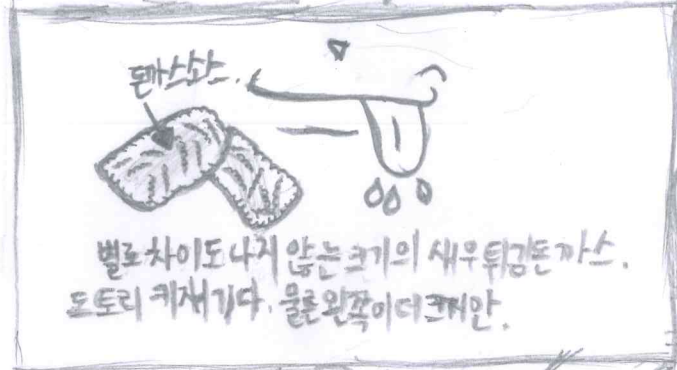 돈까스소스.
별로 차이도 나지 않는 크기의 새우튀김돈까스.
도토리 키재기다. 물론 왼쪽이 더 크지만.